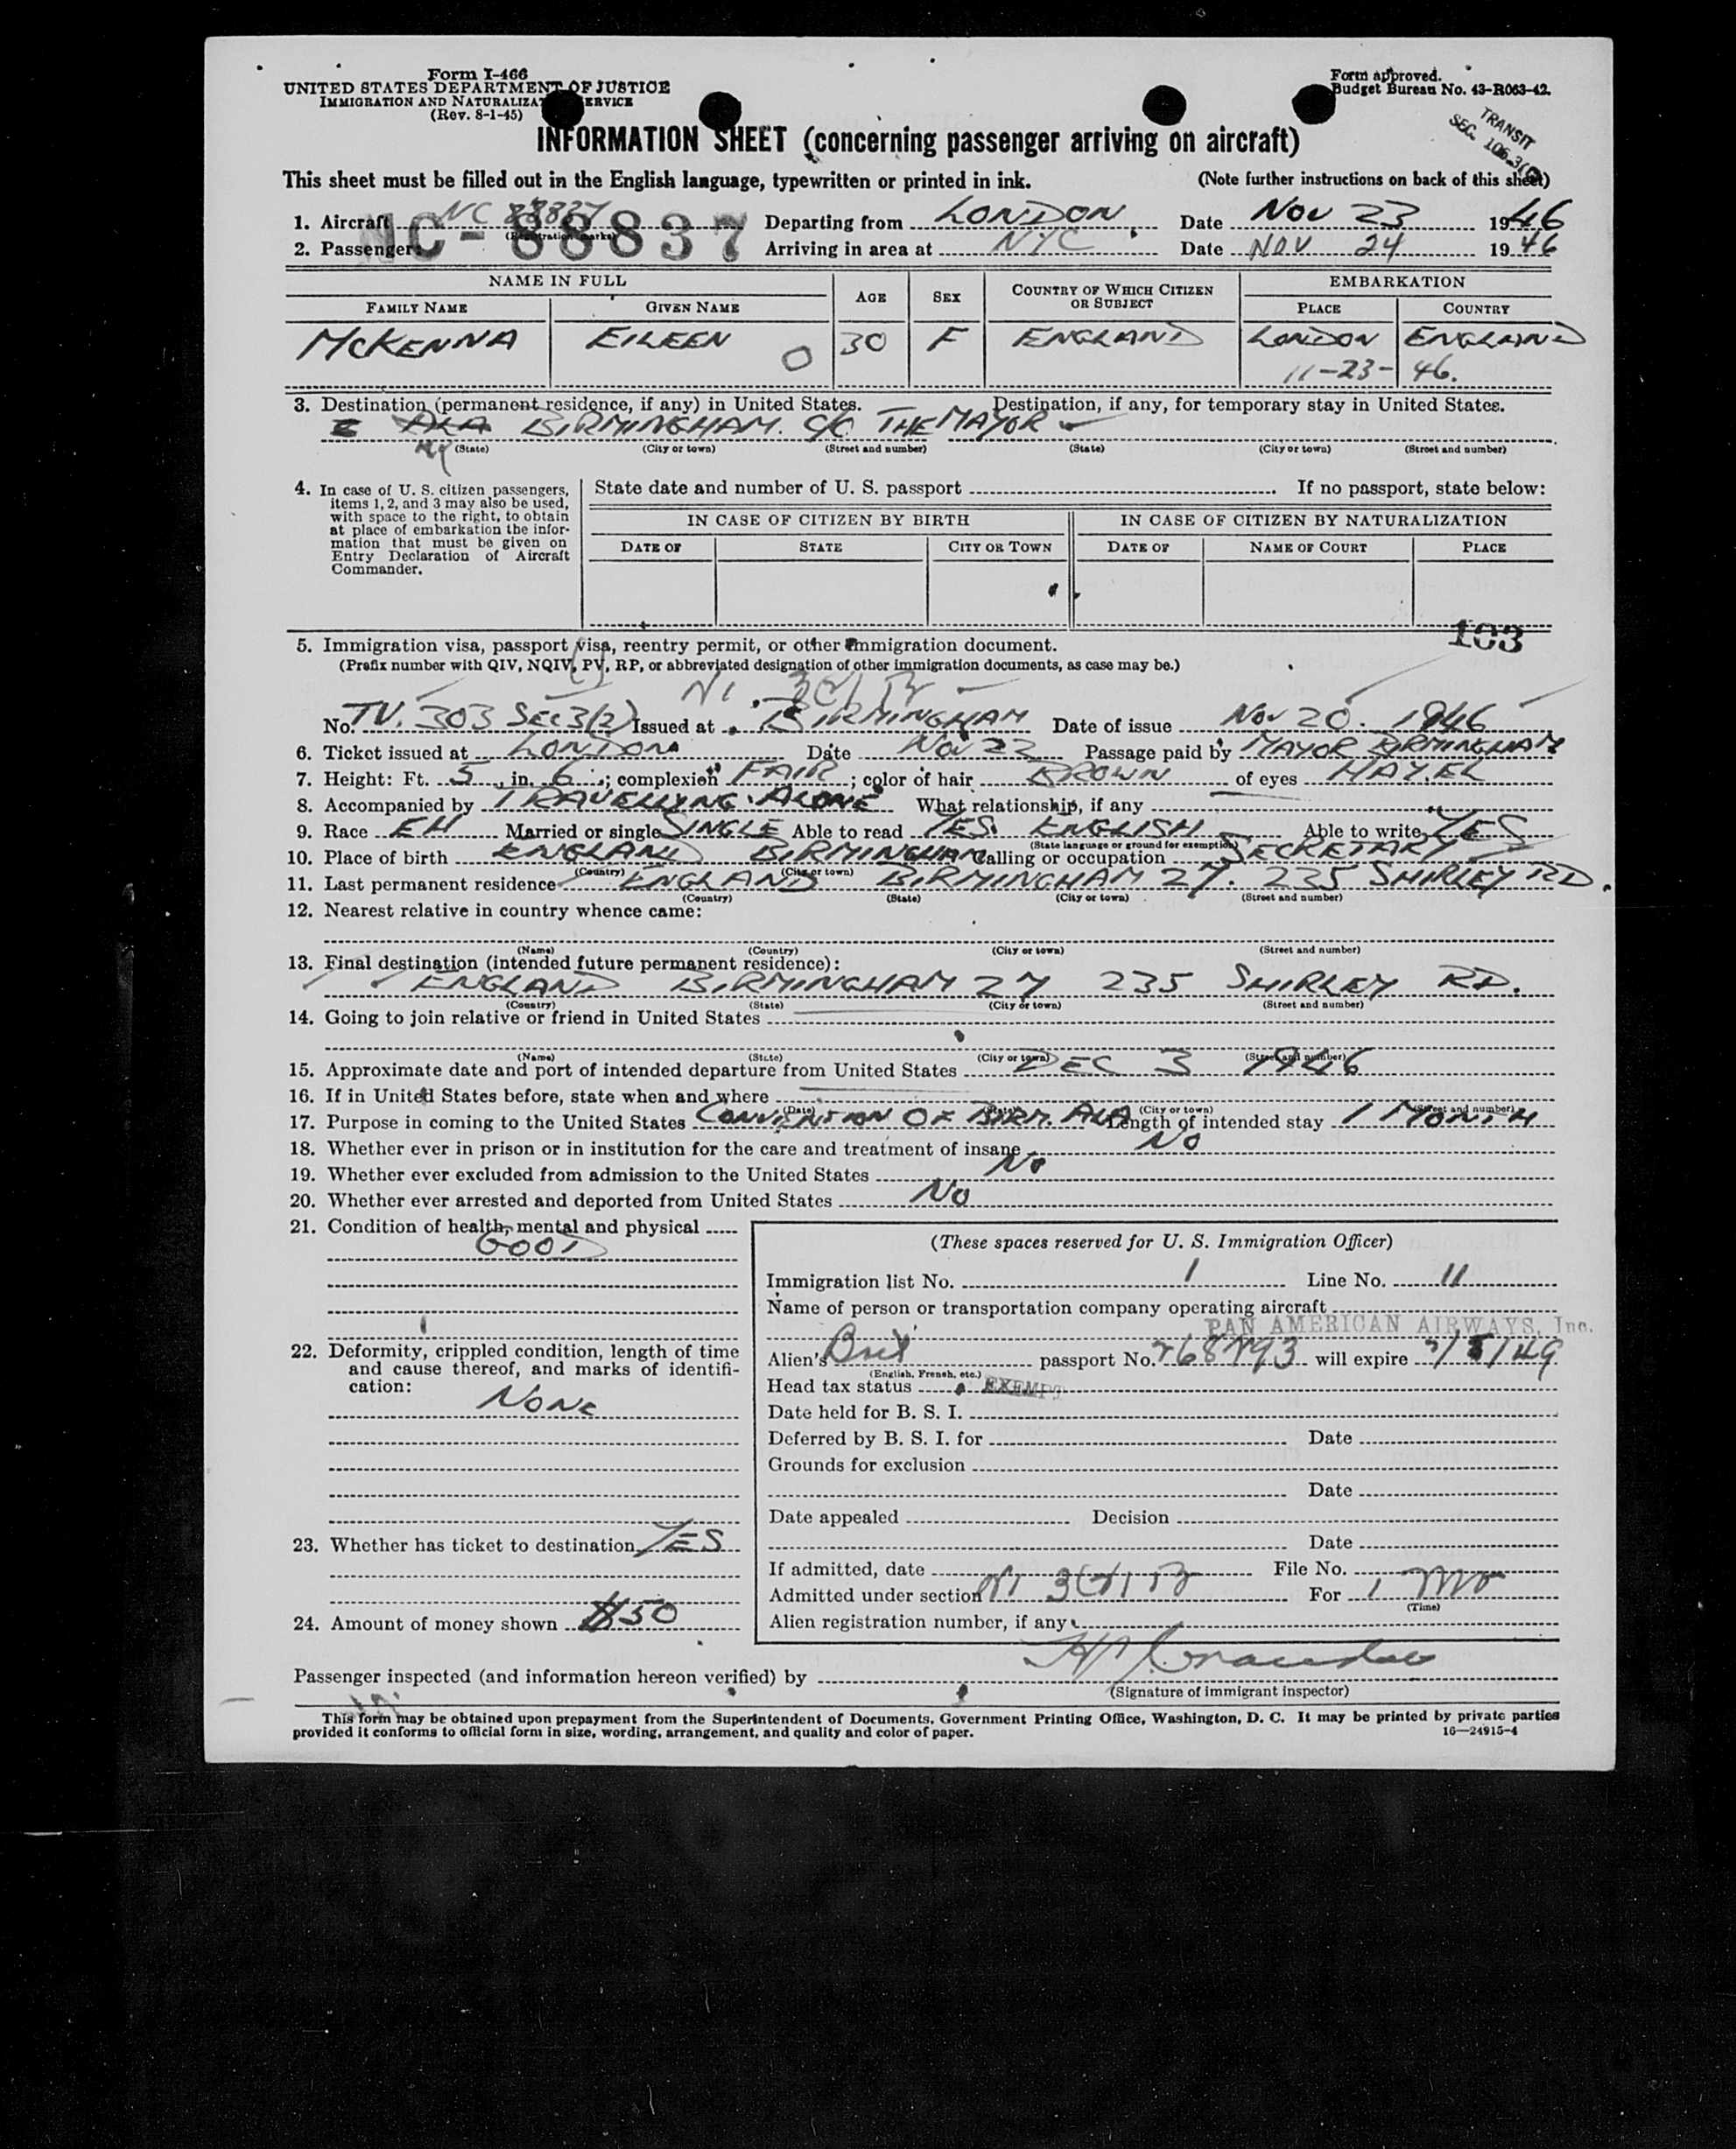 Form I-466
UNITED STATES DEPARTMENT OF JUSTICE
IMMIGRATION AND NATURALIZATION SERVICE
(Rev. 8-1-45)
Form approved.
Budget Bureau No. 43-R063-42.
TRANSIT
SEC. 106.3
INFORMATION SHEET (concerning passenger arriving on aircraft)
This sheet must be filled out in the English language, typewritten or printed in ink. (Note further instructions on back of this sheet)
1. Aircraft NC 88837 (Registration marks) Departing from LONDON Date NOV 23 1946
NC-88837
2. Passenger: Arriving in area at NYC Date NOV 24 1946
NAME IN FULL AGE SEX COUNTRY OF WHICH CITIZEN OR SUBJECT EMBARKATION
FAMILY NAME GIVEN NAME PLACE COUNTRY
MCKENNA EILEEN O 30 F ENGLAND LONDON ENGLAND
11-23-46.
3. Destination (permanent residence, if any) in United States. Destination, if any, for temporary stay in United States.
ALA BIRMINGHAM. C/O THE MAYOR
(State) (City or town) (Street and number) (State) (City or town) (Street and number)
4. In case of U. S. citizen passengers, items 1, 2, and 3 may also be used, with space to the right, to obtain at place of embarkation the information that must be given on Entry Declaration of Aircraft Commander.
State date and number of U. S. passport If no passport, state below:
IN CASE OF CITIZEN BY BIRTH IN CASE OF CITIZEN BY NATURALIZATION
DATE OF STATE CITY OR TOWN DATE OF NAME OF COURT PLACE
103
5. Immigration visa, passport visa, reentry permit, or other immigration document.
(Prefix number with QIV, NQIV, PV, RP, or abbreviated designation of other immigration documents, as case may be.)
No. TV. 303 SEC 3(2) Issued at BIRMINGHAM Date of issue NOV 20. 1946
6. Ticket issued at LONDON Date NOV 22 Passage paid by MAYOR BIRMINGHAM
7. Height: Ft. 5, in. 6; complexion FAIR; color of hair BROWN of eyes HAZEL
8. Accompanied by TRAVELLING ALONE What relationship, if any
9. Race EH Married or single SINGLE Able to read YES. ENGLISH Able to write YES
(State language or ground for exemption)
10. Place of birth ENGLAND BIRMINGHAM Calling or occupation SECRETARY
(Country) (City or town)
11. Last permanent residence ENGLAND BIRMINGHAM 27. 235 SHIRLEY RD.
(Country) (State) (City or town) (Street and number)
12. Nearest relative in country whence came:
(Name) (Country) (City or town) (Street and number)
13. Final destination (intended future permanent residence):
ENGLAND BIRMINGHAM 27 235 SHIRLEY RD.
(Country) (State) (City or town) (Street and number)
14. Going to join relative or friend in United States
(Name) (State) (City or town) (Street and number)
15. Approximate date and port of intended departure from United States DEC 3 1946
16. If in United States before, state when and where
(Date) (State) (City or town) (Street and number)
17. Purpose in coming to the United States CONVENTION OF BIRM. ALA Length of intended stay 1 MONTH
18. Whether ever in prison or in institution for the care and treatment of insane NO
19. Whether ever excluded from admission to the United States NO
20. Whether ever arrested and deported from United States NO
21. Condition of health, mental and physical
GOOD
22. Deformity, crippled condition, length of time and cause thereof, and marks of identification:
NONE
23. Whether has ticket to destination YES
24. Amount of money shown $50
(These spaces reserved for U. S. Immigration Officer)
Immigration list No. 1 Line No. 11
Name of person or transportation company operating aircraft
PAN AMERICAN AIRWAYS, Inc.
Alien's Brit passport No. will expire
(English, French, etc.)
Head tax status EXEMPT
Date held for B. S. I.
Deferred by B. S. I. for Date
Grounds for exclusion
Date
Date appealed Decision
Date
If admitted, date File No.
Admitted under section For 1 Mo
(Time)
Alien registration number, if any
Passenger inspected (and information hereon verified) by
(Signature of immigrant inspector)
This form may be obtained upon prepayment from the Superintendent of Documents, Government Printing Office, Washington, D. C. It may be printed by private parties
provided it conforms to official form in size, wording, arrangement, and quality and color of paper. 16—24915-4